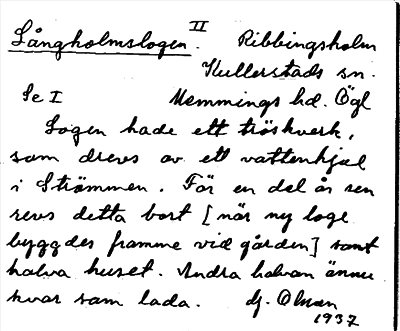 II
Långholmslogen. Ribbingsholm
Kullerstads sn.
Se I Memmings hd. Ögl
Logen hade ett tröskverk,
som drevs av ett vattenhjul
i Strömmen. För en del år sen
revs detta bort [när ny loge
byggdes framme vid gården] samt
halva huset. Andra halvan ännu
kvar som lada. Hj. Olson
1937